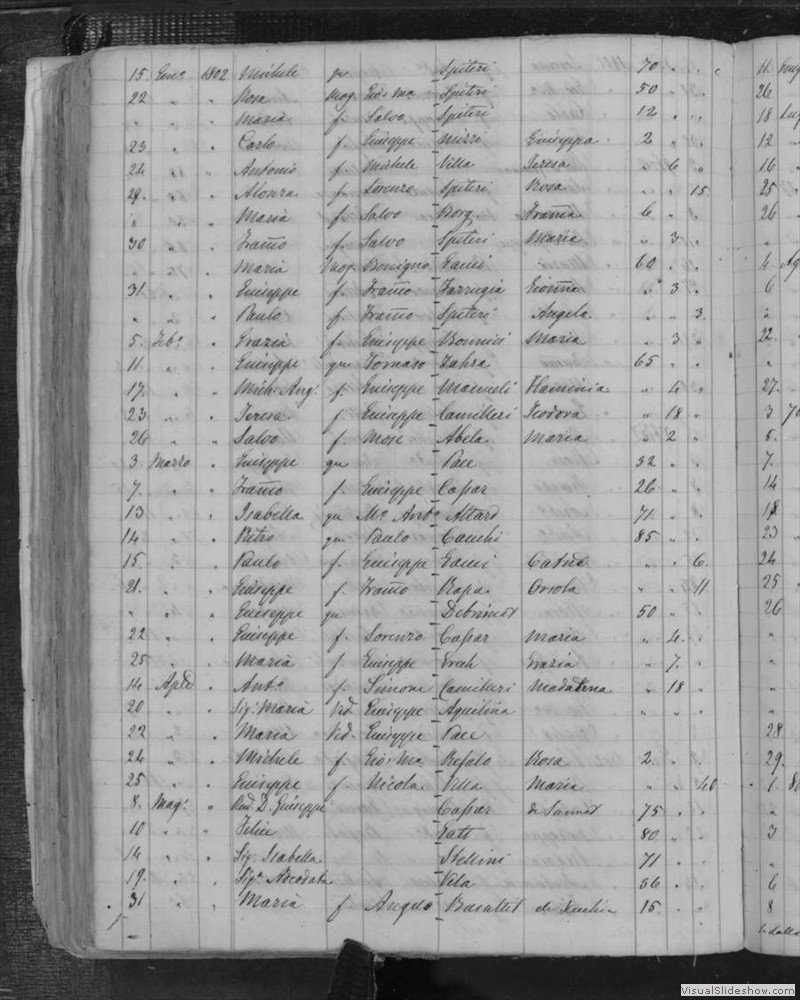 15. Genº 1802 Michele qu Spiteri 70 " "
22 " " Rosa Mog. Gio: Ma Spiteri 50 " "
" " " Maria f. Salvo Spiteri 12 " "
23 " " Carlo f. Giuseppe Mizzi Giuseppa 2 " "
24 " " Antonio f. Michele Villa Teresa " 6 "
29. " " f. Lorenzo Spiteri Rosa " " 15.
" " " Maria f. Salvo Borg Franca 6 " "
30 " " Franco f. Salvo Spiteri Maria " 3 "
" " " Maria Mog. Benigno 60 " "
31 " " Giuseppe f. Franco Farrugia Gionna " 3 "
" " " Paulo f. Franco Spiteri Angela " " 3.
5. Febº " Grazia f. Giuseppe Bonnici Maria " 3 "
11 " " Giuseppe qu Tomaso Zahra 65 " "
17. " " Mich: Ang. f. Giuseppe Mamueli Flaminia " 4 "
23 " " Teresa f. Giuseppe Camilleri Teodora " 18 "
26 " " Salvo f. Mose Abela Maria " 2 "
3. Marzo " Giuseppe qu Pace 52 " "
7. " " Franco f. Giuseppe Caspar 26 " "
13 " " Isabella qu Mº Antº Attard 71 " "
14 " " Pietro qu Paulo Cauchi 85 " "
15. " " Paulo f. Giuseppe Catna " " 6.
21. " " Giuseppe f. Franco Rapa Orsola " " 11
" " " Giuseppe qu 50 " "
22 " " Giuseppe f. Lorenzo Caspar Maria " 4. "
25 " " Maria f. Giuseppe Grech Grazia " 7. "
14 Aple " Antº f. Simone Camilleri Madalena " 18 "
20 " " Sigª Maria Ved. Giuseppe Aquilina " " "
22 " " Maria Ved. Giuseppe Pace
24 " " Michele f Gio: Ma Refalo Rosa 2. " "
25 " " Giuseppe f. Nicola Villa Maria " " 40
8. Magº " Rud. D. Giuseppe Caspar 75 " "
10 " " Felice 80 " "
14 " " Sigª Isabella Stellini 71 " "
19. " " Sigª Adeodata Vela 56 " "
31 " " Maria f Angelo 15. " "
11.
26
18
12
16
25
26
"
4
6
"
22.
"
27.
3
5.
7.
14
18
23
24
25
26
"
"
"
28
29.
1
3
"
6
8
VisualSlideshow.com